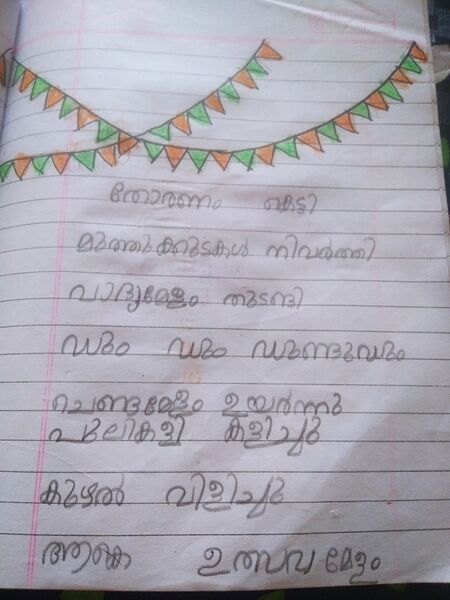 തോരണം കെട്ടി
മുത്തുക്കുടകൾ നിവർത്തി
വാദ്യമേളം തുടങ്ങി
ഡും ഡും ഡുണ്ടുഡും
ചെണ്ടമേളം ഉയർന്നു
പുലികളി കളിച്ചു
കുഴൽ വിളിച്ചു
ആകെ ഉത്സവമേളം